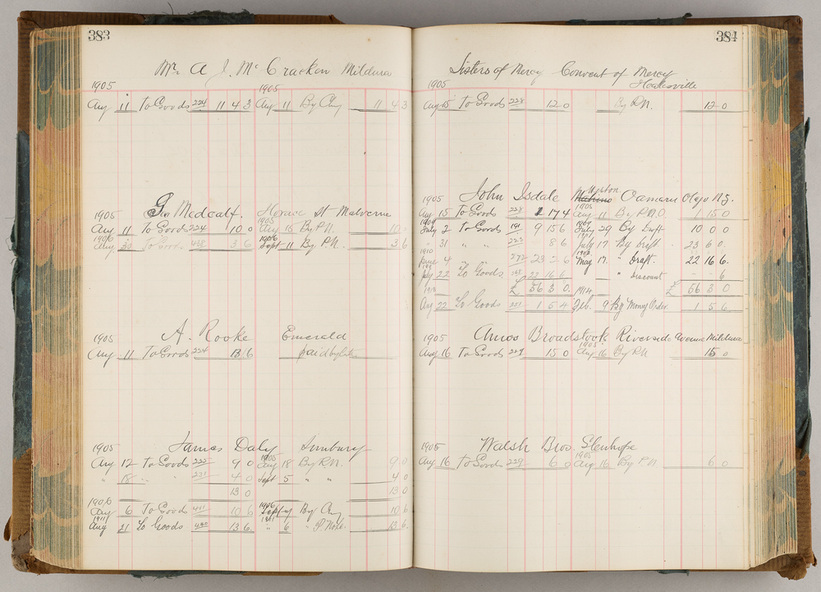 383
Mr. A. J. McCracken Mildura
1905 1905
Aug 11 To Goods 224 11 4 3 Aug 11 By Chq 11 4 3
Geo Medcalf. Horace St Malvern
1905 1905
Aug 11 To Goods 224 10 0 Aug 15 By P.N. 10
1906 1906
Aug 30 To Goods 3 6 Sept 11 By P.N. 3 6
A. Rooke Emerald
1905
Aug 11 To Goods 224 13 6 paid by
James Daly Sunbury
1905 1905
Aug 12 To Goods 9 0 Aug 18 By P.N. 9 0
" 18 " " 4 0 Sept 5 " " 4 0
13 0 13 0
1906 1906
Aug 6 To Goods 10 6 Sept 4 By Chq 10 6
1911 1911
Aug 21 To Goods 13 6 " 6 " P. Note 13 6
384
Sisters of Mercy Convent of Mercy
1905
Aug 15 To Goods 223 12 0 By P.N. 12 0
John Isdale Weston Oamaru Otago N.Z.
1905 1905
Aug 15 To Goods 223 1 17 4 Aug 11 By P.N.O. 1 15 0
July 2 To Goods 191 9 15 6 July 29 By Dft 10 0 0
" 31 " " 8 6 July 17 By Draft 23 6 0
1910
June 4 272 23 2 6 May 17 " Draft 22 16 6
July 22 To Goods 22 16 6 " Discount 6
£ 56 3 0 1914 £ 56 3 0
Aug 22 To Goods 1 5 4 Feb. 9 By Money Order 1 5 6
Amos Broadstock Riverside Avenue Mildura
1905 1905
Aug 16 To Goods 224 15 0 Aug 16 By P.N. 15 0
Walsh Bros. Glenhope
1905 1905
Aug 16 To Goods 224 6 0 Aug 16 By P.N. 6 0